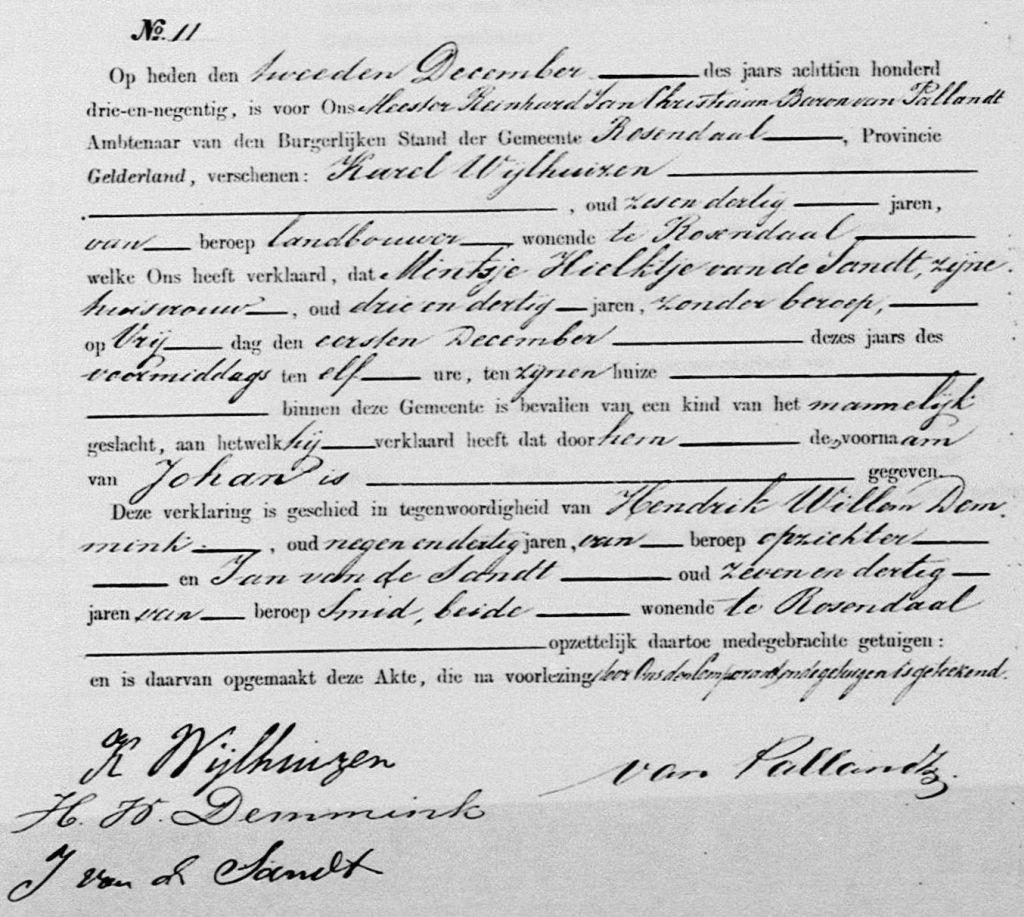 No. 11
Op heden den tweeden December des jaars achttien honderd
drie-en-negentig, is voor Ons Meester Reinhard Jan Christiaan Baron van Pallandt
Ambtenaar van den Burgerlijken Stand der Gemeente Rosendaal, Provincie
Gelderland, verschenen: Karel Wijlhuizen
, oud zesendertig jaren,
van beroep landbouwer wonende te Rosendaal
welke Ons heeft verklaard, dat Mintsje Hielktje van de Sandt, zijne
huisvrouw, oud drie en dertig jaren, zonder beroep,
op Vrij dag den eersten December dezes jaars des
voormiddags ten elf ure, ten zijnen huize
binnen deze Gemeente is bevallen van een kind van het mannelijk
geslacht, aan hetwelk hij verklaard heeft dat door hem de voornaam
van Johan is gegeven
Deze verklaring is geschied in tegenwoordigheid van Hendrik Willem Dem-
mink, oud negen en dertig jaren, van beroep opzichter
en Jan van de Sandt oud zeven en dertig
jaren van beroep Smid, beide wonende te Rosendaal
opzettelijk daartoe medegebrachte getuigen:
en is daarvan opgemaakt deze Akte, die na voorlezing door Ons den Comparant en de getuigen is geteekend.
K Wijlhuizen
van Pallandt
H. W. Demmink
J van de Sandt